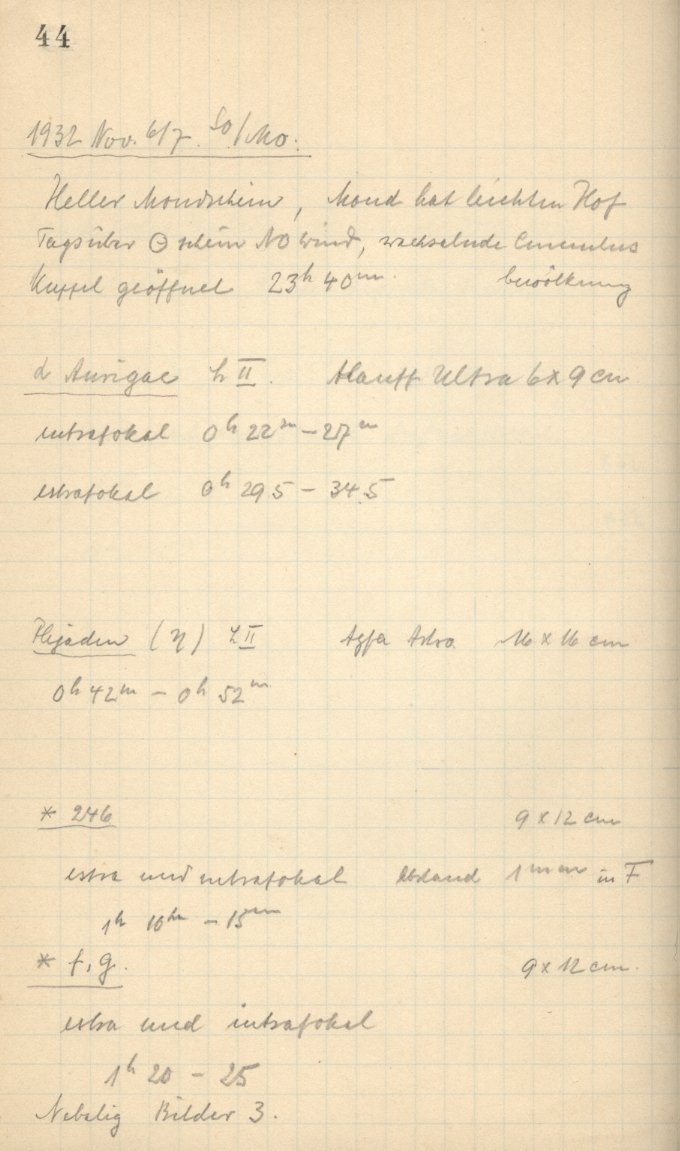 44
1932 Nov. 6/7. So/Mo.
Heller Mondschein, Mond hat leichten Hof
Tagsüber ⊙ schein NO wind, wechselnde Cumulus
Kuppel geöffnet 23h 40m bewölkung
α Aurigae II. Hauff Ultra 6 x 9 cm
intrafokal 0h 22m – 27m
extrafokal 0h 29.5 – 34.5
Plejaden (η) II Agfa Astro 16 x 16 cm
0h 42m – 0h 52m
* 246 9 x 12 cm
extra und intrafokal Abstand 1 mm in F
1h 10m – 15m
* f, g. 9 x 12 cm.
extra und intrafokal
1h 20 – 25
Nebelig Bilder 3.